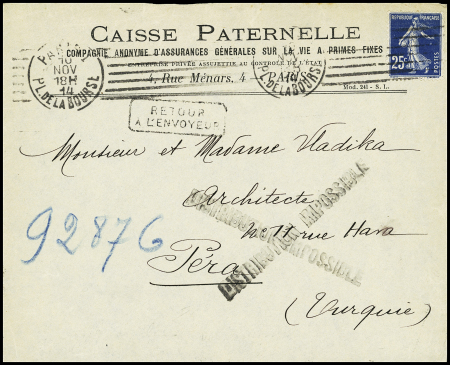 CAISSE PATERNELLE
COMPAGNIE ANONYME D'ASSURANCES GÉNÉRALES SUR LA VIE A PRIMES FIXES
ENTREPRISE PRIVÉE ASSUJETTIE AU CONTRÔLE DE L'ÉTAT
4, Rue Ménars, 4 — PARIS
Mod. 241 - S. I.
REPUBLIQUE FRANÇAISE
25c
POSTES
PARIS
10
NOV
18H
14
PL. DE LA BOURSE
PL. DE LA BOURSE
RETOUR
A L'ENVOYEUR
Monsieur et Madame Vladika
Architecte
No 11 rue Hava
Péra
(Turquie)
92876
DISTRIBUTION IMPOSSIBLE
DISTRIBUTION IMPOSSIBLE